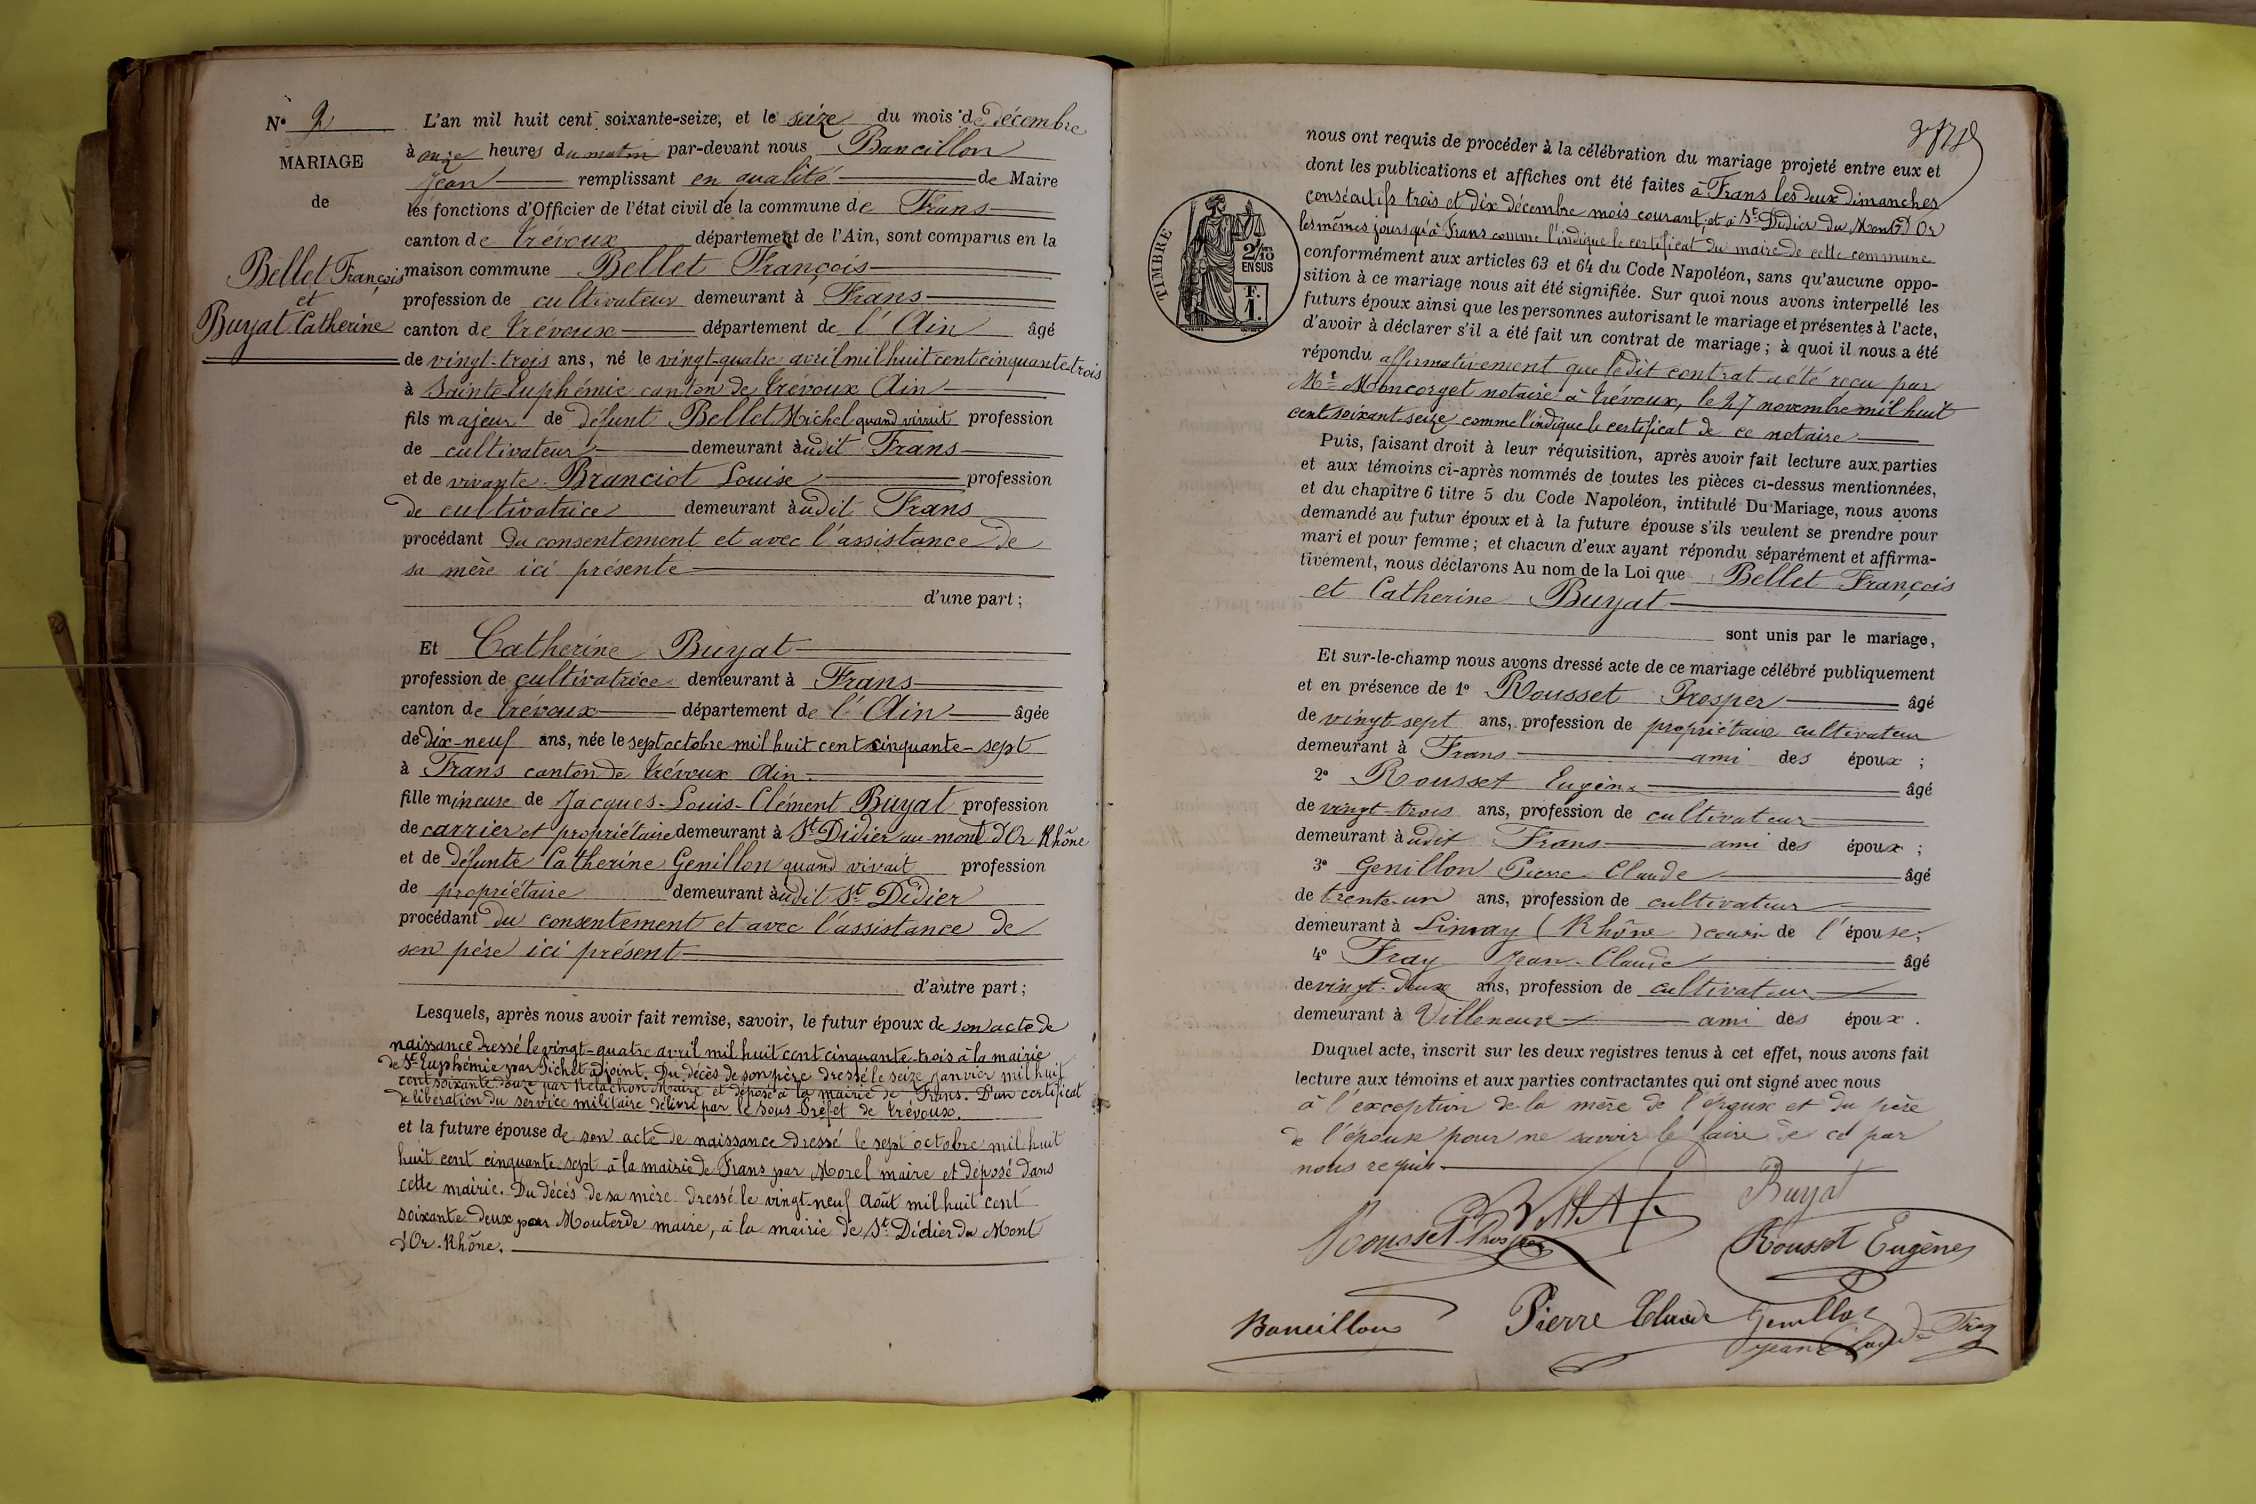 N° 9
MARIAGE
de
Bellet François
et
Buyat Catherine
L'an mil huit cent soixante-seize, et le seize du mois de décembre
à onze heures du matin par-devant nous Bancillon
Jean remplissant en qualité de Maire
les fonctions d'Officier de l'état civil de la commune de Frans
canton de Trévoux département de l'Ain, sont comparus en la
maison commune Bellet François
profession de cultivateur demeurant à Frans
canton de Trévoux département de l'Ain âgé
de vingt-trois ans, né le vingt-quatre avril mil huit cent cinquante trois
à Sainte Euphémie canton de Trévoux Ain
fils majeur de défunt Bellet Michel quand vivait profession
de cultivateur demeurant audit Frans
et de vivante Branciot Louise profession
de cultivatrice demeurant audit Frans
procédant du consentement et avec l'assistance de
sa mère ici présente
d'une part ;
Et Catherine Buyat
profession de cultivatrice demeurant à Frans
canton de Trévoux département de l'Ain âgée
de dix-neuf ans, née le sept octobre mil huit cent cinquante-sept
à Frans canton de Trévoux Ain
fille mineuse de Jacques-Louis-Clément Buyat profession
de carrier et propriétaire demeurant à St Didier au mont d'Or Rhône
et de défunte Catherine Genillon quand vivait profession
de propriétaire demeurant audit St Didier
procédant du consentement et avec l'assistance de
son père ici présent
d'autre part ;
Lesquels, après nous avoir fait remise, savoir, le futur époux de son acte de
naissance dressé le vingt-quatre avril mil huit cent cinquante-trois à la mairie
de St Euphémie par Pichet adjoint. Du décès de son père dressé le seize janvier mil huit
cent soixante douze par Maire et déposé à la mairie de Frans. D'un certificat
de libération du service militaire délivré par le Sous Préfet de Trévoux.
et la future épouse de son acte de naissance dressé le sept octobre mil huit
huit cent cinquante sept à la mairie de Frans par Morel maire et déposé dans
cette mairie. Du décès de sa mère dressé le vingt-neuf Août mil huit cent
soixante deux par Mouterde maire, à la mairie de St Didier du Mont
d'Or. Rhône.
nous ont requis de procéder à la célébration du mariage projeté entre eux et
dont les publications et affiches ont été faites à Frans les deux dimanches
consécutifs trois et dix décembre mois courant, et à St Didier du Mont d'Or
les mêmes jours qu'à Frans comme l'indique le certificat du maire de cette commune
TIMBRE
2/10
EN SUS
F.
1.
conformément aux articles 63 et 64 du Code Napoléon, sans qu'aucune oppo-
sition à ce mariage nous ait été signifiée. Sur quoi nous avons interpellé les
futurs époux ainsi que les personnes autorisant le mariage et présentes à l'acte,
d'avoir à déclarer s'il a été fait un contrat de mariage ; à quoi il nous a été
répondu affirmativement que ledit contrat a été reçu par
Mr Moncorget notaire à Trévoux, le 27 novembre mil huit
cent soixant seize comme l'indique le certificat de ce notaire
Puis, faisant droit à leur réquisition, après avoir fait lecture aux parties
et aux témoins ci-après nommés de toutes les pièces ci-dessus mentionnées,
et du chapitre 6 titre 5 du Code Napoléon, intitulé Du Mariage, nous avons
demandé au futur époux et à la future épouse s'ils veulent se prendre pour
mari et pour femme ; et chacun d'eux ayant répondu séparément et affirma-
tivement, nous déclarons Au nom de la Loi que Bellet François
et Catherine Buyat
sont unis par le mariage,
Et sur-le-champ nous avons dressé acte de ce mariage célébré publiquement
et en présence de 1° Rousset Prosper âgé
de vingt sept ans, profession de propriétaire cultivateur
demeurant à Frans ami des époux ;
2° Rousset Eugène âgé
de vingt-trois ans, profession de cultivateur
demeurant audit Frans ami des époux ;
3° Genillon Pierre Claude âgé
de trente-un ans, profession de cultivateur
demeurant à (Rhône) cousin de l'épouse;
4° Fray Jean-Claude âgé
de vingt-deux ans, profession de cultivateur
demeurant à Villeneuve ami des époux.
Duquel acte, inscrit sur les deux registres tenus à cet effet, nous avons fait
lecture aux témoins et aux parties contractantes qui ont signé avec nous
à l'exception de la mère de l'époux et du père
de l'épouse pour ne savoir le faire de ce par
nous requis.
Buyat
Rousset Prosper
Rousset Eugène
Bancillon
Pierre Claude Genillon
Jean Claude Fray